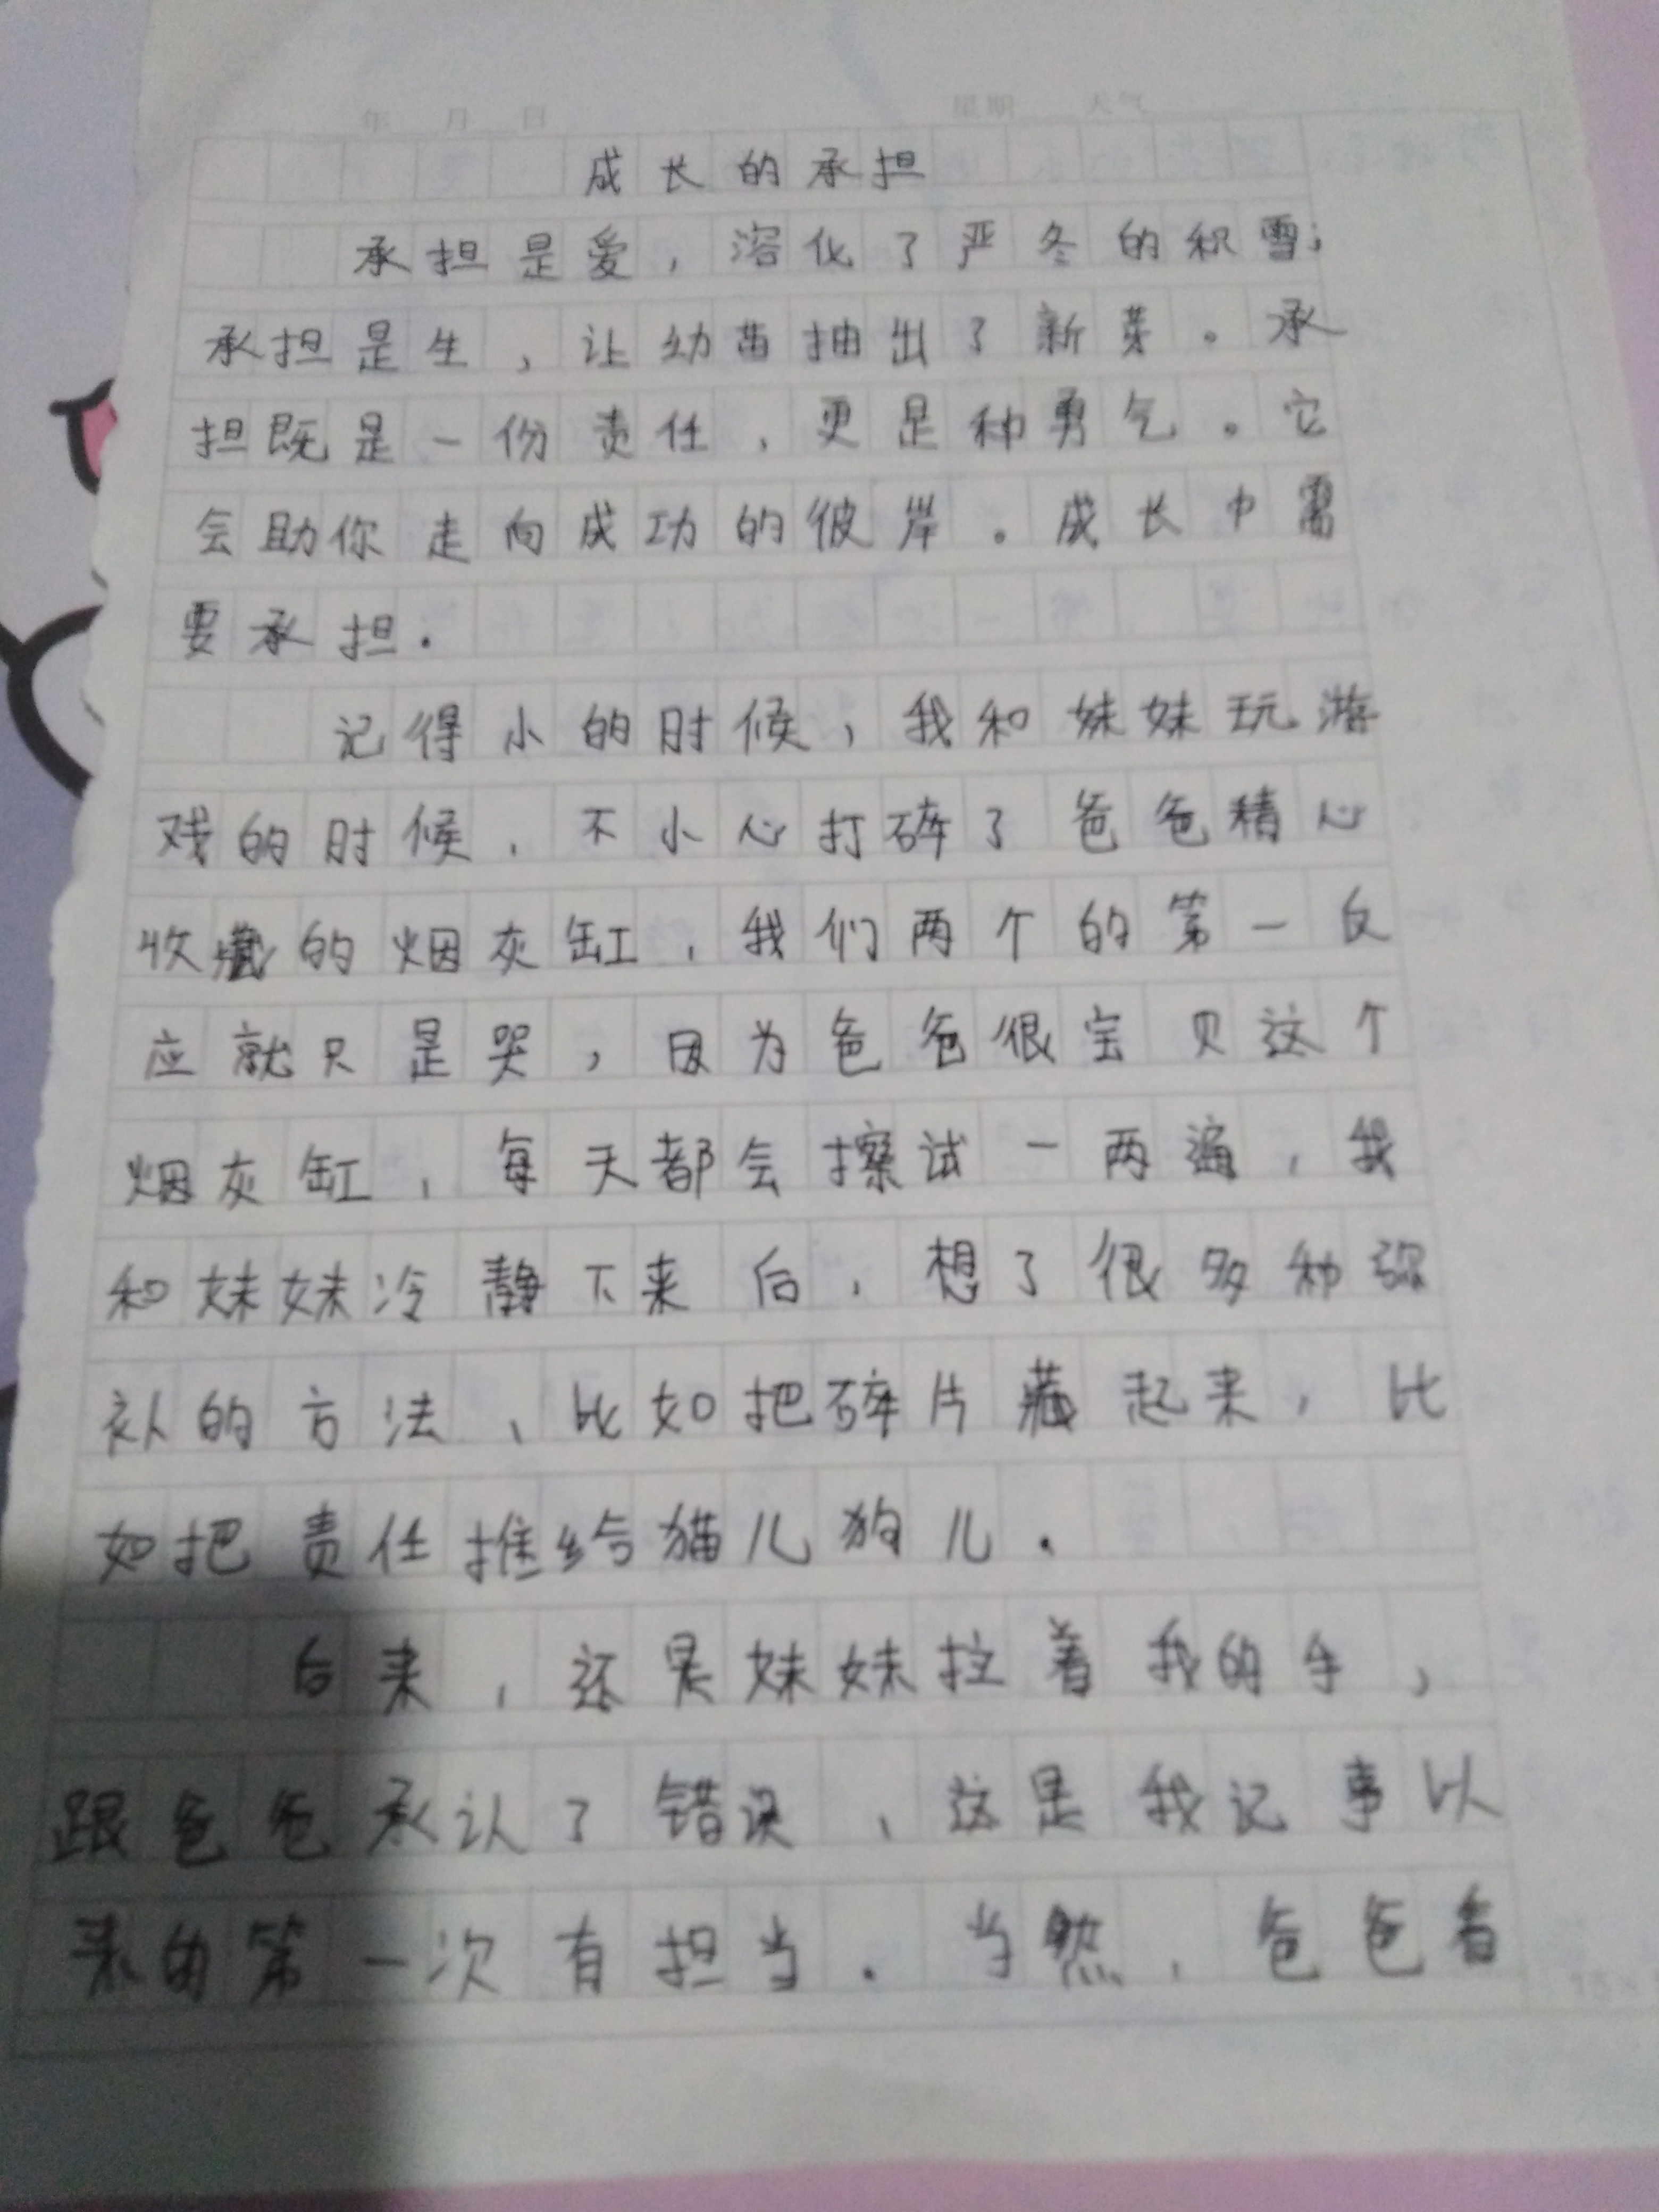 年 月 日 星期 天气
成长的承担
承担是爱，溶化了严冬的积雪；
承担是生，让幼苗抽出了新芽。承
担既是一份责任，更是种勇气。它
会助你走向成功的彼岸。成长中需
要承担.
记得小的时候，我和妹妹玩游
戏的时候，不小心打碎了爸爸精心
收藏的烟灰缸，我们两个的第一反
应就只是哭，因为爸爸很宝贝这个
烟灰缸，每天都会擦试一两遍，我
和妹妹冷静下来后，想了很多种弥
补的方法、比如把碎片藏起来，比
如把责任推给猫儿狗儿.
后来，还是妹妹拉着我的手，
跟爸爸承认了错误，这是我记事以
来的第一次有担当.当然，爸爸看